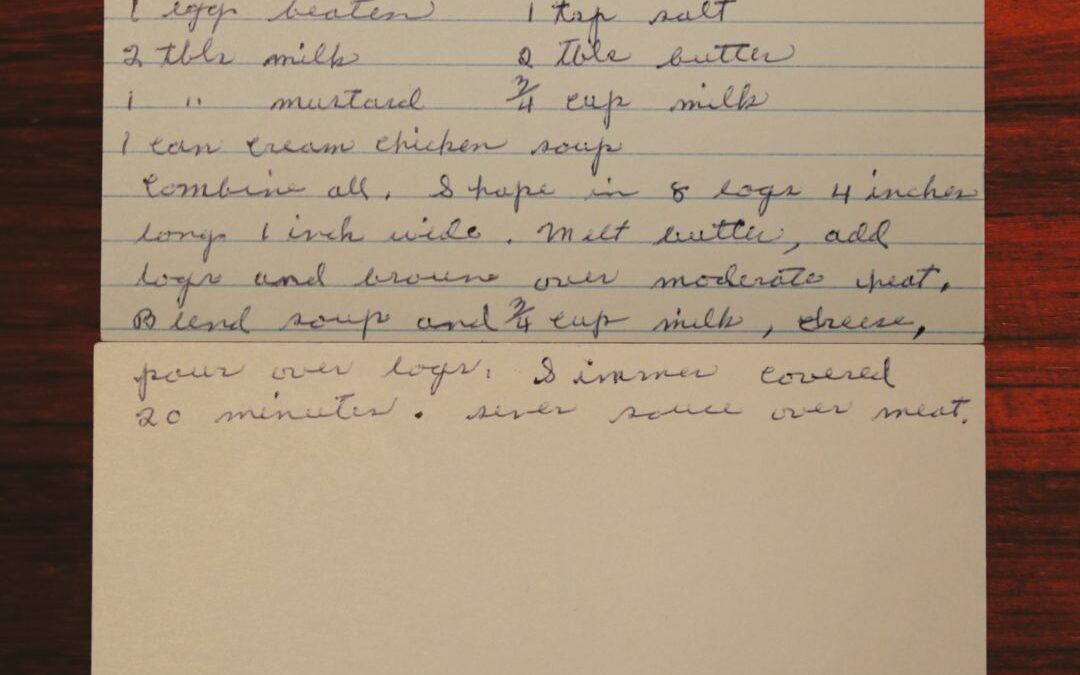 1 egg beaten 1 tsp salt
2 tbls milk 2 tbls butter
1 " mustard 3/4 cup milk
1 can cream chicken soup
Combine all. Shape in 8 logs 4 inches
long 1 inch wide. Melt butter, add
logs and brown over moderate heat.
Blend soup and 3/4 cup milk, cheese,
pour over logs. Simmer covered
20 minutes. serve sauce over meat.